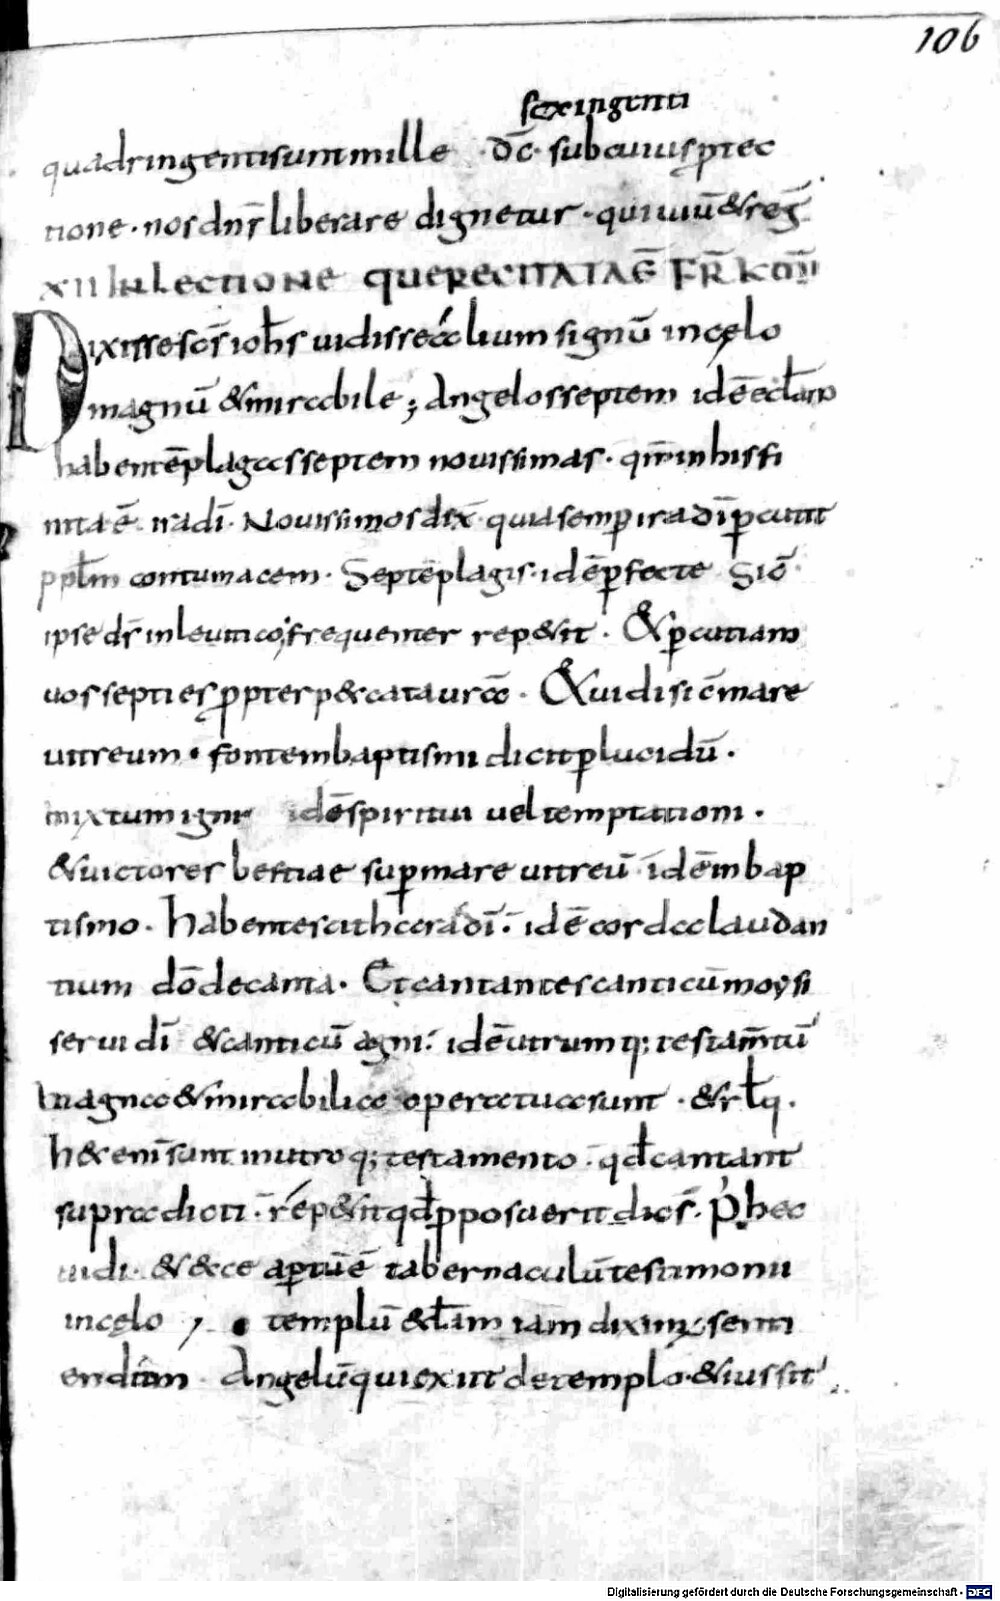 106
sexingenti
quadringentisuntmille dc̄· subcuius ꝓtec
tione· nos dn̄s liberare dignetur· qui uiuū & reḡ
XII IN LECTIONE QUE RECITATA Ē FR̄ K͞M͞I
Dixisse sc̄s ioh̄s uidisse alium signū in cęlo
magnū & mirabile; Angelos septem idē ecl̄am
habentē plagas septem nouissimas· qm̄ in his fi
nita ē ira dī· Nouissimos dix̄ quia semp̄ ira dī p̄cutit
ppl̄m contumacem· Septē plagis· idē p̄fecte Sic̄
ipse dn̄s in leuitico frequenter rep&it· & p̄cutiam
uos septies ꝓpter p&cata ur̄a· & uidi sic̄ mare
uitreum· fontem baptismi dicit p̄lucidū·
mixtum igni idē spiritui uel temptationi·
& uictores bestiae sup̄ mare uitreū idē in bap
tismo· habentes citharas dī· idē corda laudan
tium dō decanta· Et cantantes canticū moysi
serui dī & canticū agni· idē utrumq; testam̄tū
magna & mirabilia opera tua sunt· & rl̄q·
h&c enī sunt in utroq; testamento· qd̄ cantant
supradicti· rep&it qd̄ p̄posuerit dicēs· P̄ hec
uidi· & &ce ap̄tū ē tabernaculū testimonii
in cęlo templū & l̄am iam diximꝰ senti
endam· Angelū qui exiit de templo· & iussit
Digitalisierung gefördert durch die Deutsche Forschungsgemeinschaft - DFG